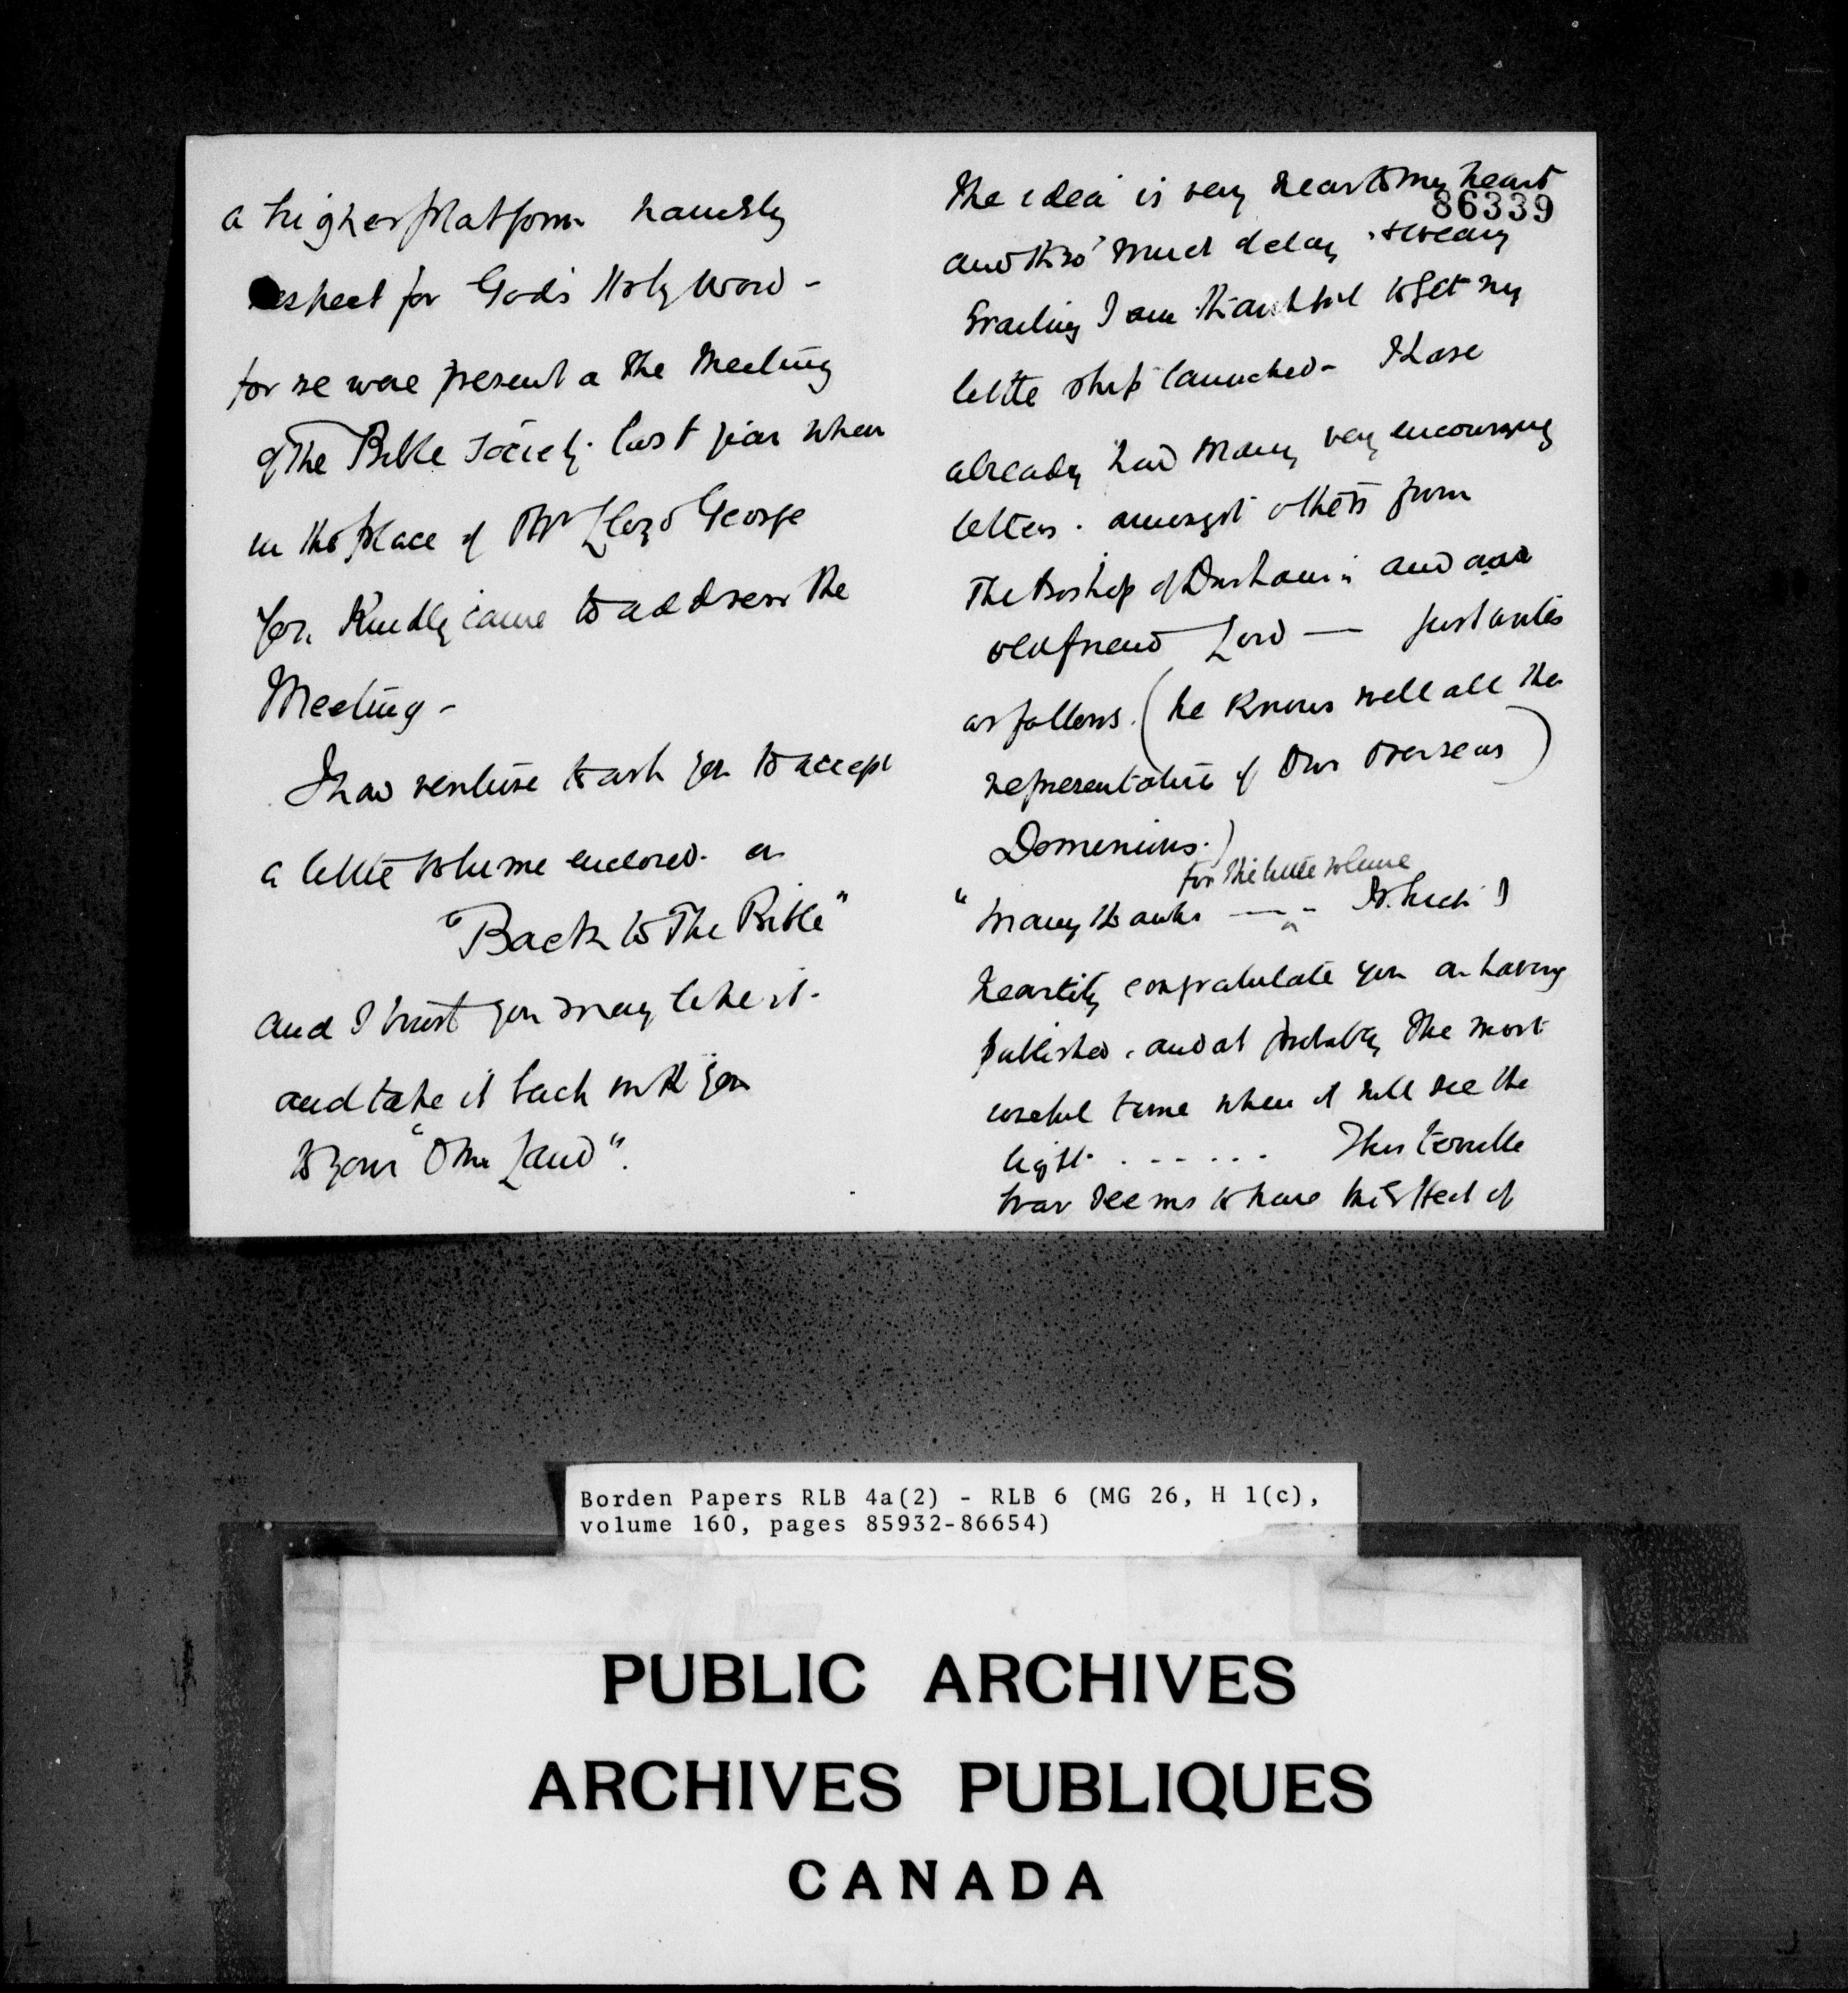 a higher platform namely
respect for God's Holy Word -
for we were present a the Meeting
of the Bible Society last year when
in the place of Mr Lloyd George
you kindly came to address the
Meeting -
I now venture to ask you to accept
a little volume enclosed on
"Back to The Bible"
and I trust you may like it -
and take it back with you
to your "Own Land".
The idea is very near to my heart
86339
and thro' much delay & weary
waiting I am thankful to get my
little ship launched - I have
already had many very encouraging
letters. amongst others from
The Bishop of Durham: and an
old friend Lord — just writes
as follows. (he knows well all the
representatives of Our Overseas)
Dominions.)
for the little volume
"many thanks — - which I
heartily congratulate you on having
published. and at probably the most
useful time when it will see the
light. - - - - - - This terrible
War seems to have the effect of
Borden Papers RLB 4a(2) - RLB 6 (MG 26, H 1(c),
volume 160, pages 85932-86654)
PUBLIC ARCHIVES
ARCHIVES PUBLIQUES
CANADA